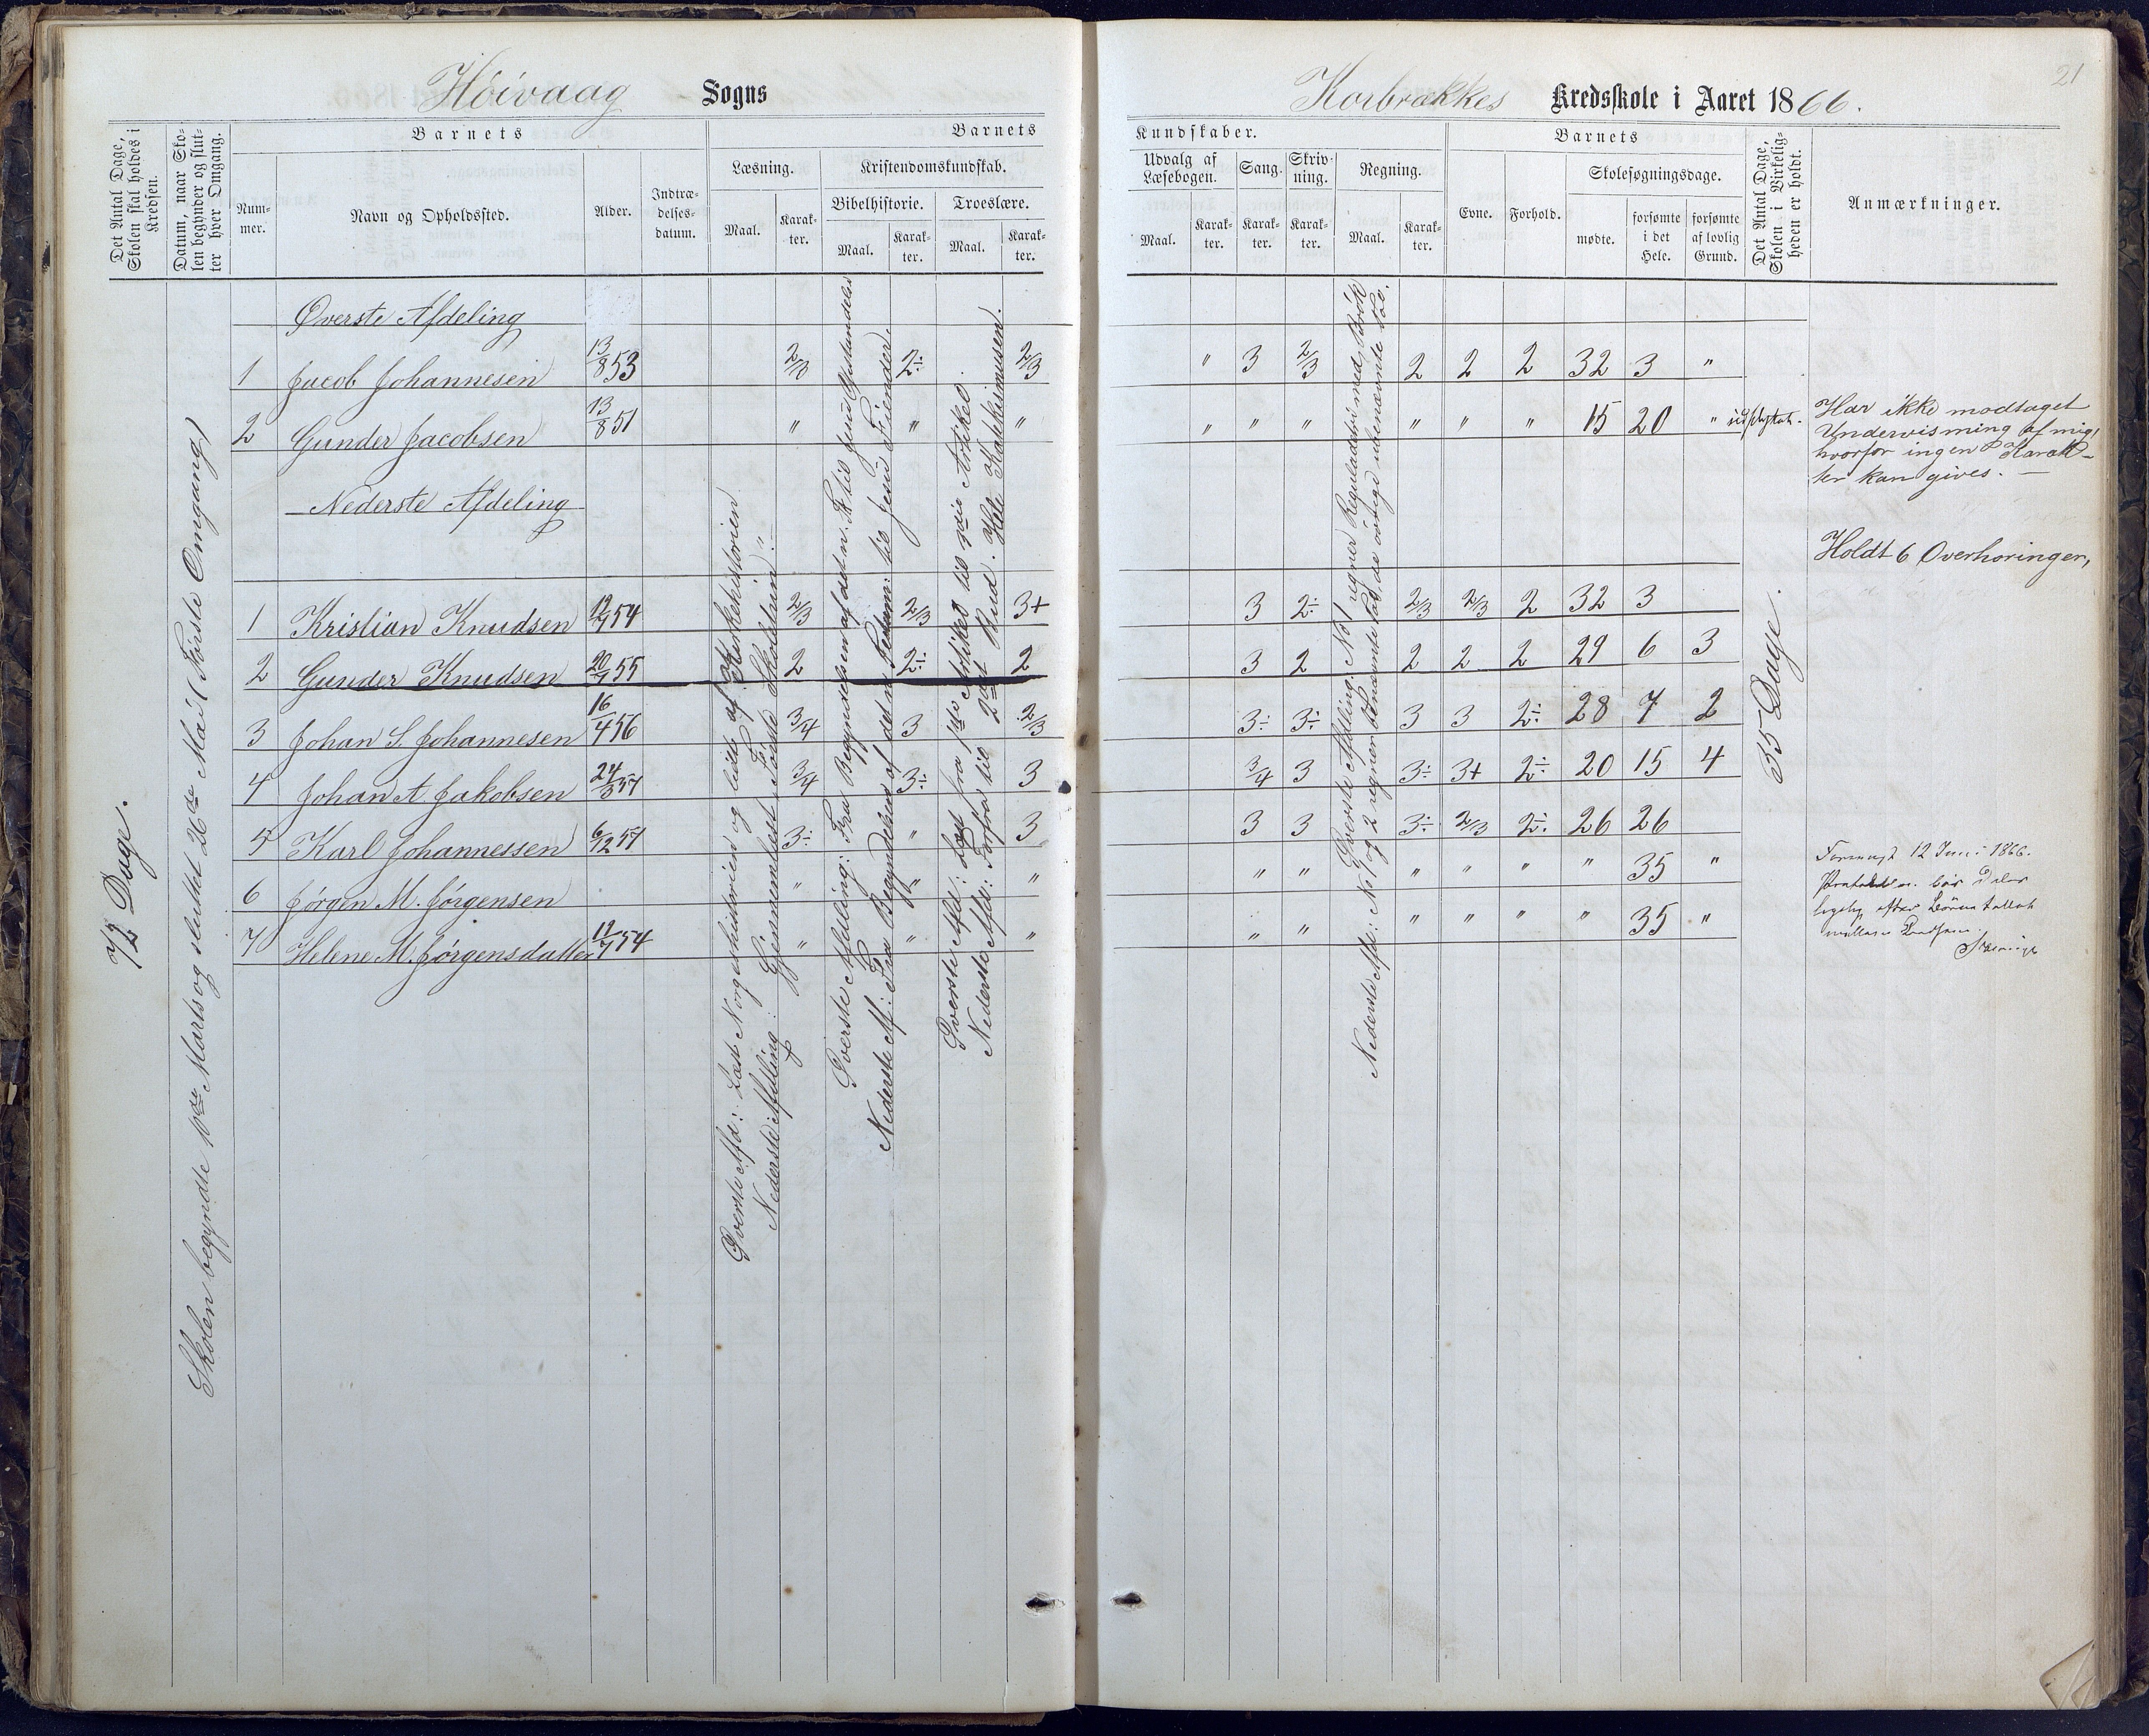 Höivaag Sogns
Korbrækkes Kredsskole i Aaret 1866.
21
Det Antal Dage, Skolen skal holdes i Kredsen.
Datum, naar Skolen begynder og slutter hver Omgang.
Barnets
Nummer.
Navn og Opholdssted.
Alder.
Indtrædelsesdatum.
Barnets
Læsning.
Maal.
Karakter.
Kristendomskundskab.
Bibelhistorie.
Maal.
Karakter.
Troeslære.
Maal.
Karakter.
Kundskaber.
Udvalg af Læsebogen.
Maal.
Karakter.
Sang.
Karakter.
Skrivning.
Karakter.
Regning.
Maal.
Karakter.
Barnets
Evne.
Forhold.
Skolesøgningsdage.
mødte.
forsømte i det Hele.
forsømte af lovlig Grund.
Det Antal Dage, Skolen i Virkeligheden er holdt.
Anmærkninger.
72 Dage.
Skolen begyndte 10de Marts og sluttet 26de Mai (Første Omgang)
Øverste Afdeling
1 Jacob Johannesen 13/8 53 2/3 2÷ 2/3 " 3 2/3 2 2 2 32 3 "
2 Gunder Jacobsen 13/8 51 " " " " " " " " " 15 20 "
Nederste Afdeling
1 Kristian Knudsen 12/7 54 2/3 2/3 3+ 3 2÷ 2/3 2/3 2 32 3
2 Gunder Knudsen 20/7 55 2 2÷ 2 3 2 2 2 2 29 6 3
3 Johan S. Johannesen 16/4 56 3/4 3 2/3 3÷ 3÷ 3 3 2÷ 28 7 2
4 Johan A. Jakobsen 24/3 57 3/4 3÷ 3 3/4 3 3÷ 3+ 2÷ 20 15 4
5 Karl Johannessen 6/12 57 3÷ " 3 3 3 3÷ 2/3 2÷ 26 26
6 Jørgen M. Jørgensen " " " " " " " " " 35 "
7 Helene M. Jørgensdatter 12/7 54 " " " " " " " " " 35 "
Øverste Afd: Læst Norgeshistorien og lidt af Kirkehistorien
Nederste Afdeling: Gjennemlæst Første Skoletrin
Øverste Afdeling: Fra Begyndelsen af det n. T. til Jesu
Nederste Af: Fra Begyndelsen af det n Testam: til Jesu Fiender.
Øverste Afd: Læst fra 1ste Artikel til Artikel.
Nederste Afd: Forfra til 2det Bud. Hele Katekismusen.
Øverste Afdling: No 1 regner Reguladetri med Brøk
Nederste Afd: No 1 og 2 regner benævnte Tal, de øvrige ubenævnte
35 Dage.
Har ikke modtaget
Undervisning af mig,
hvorfor ingen Karak-
ter kan gives. —
Holdt 6 Overhøringer,
12 Juni 1866.